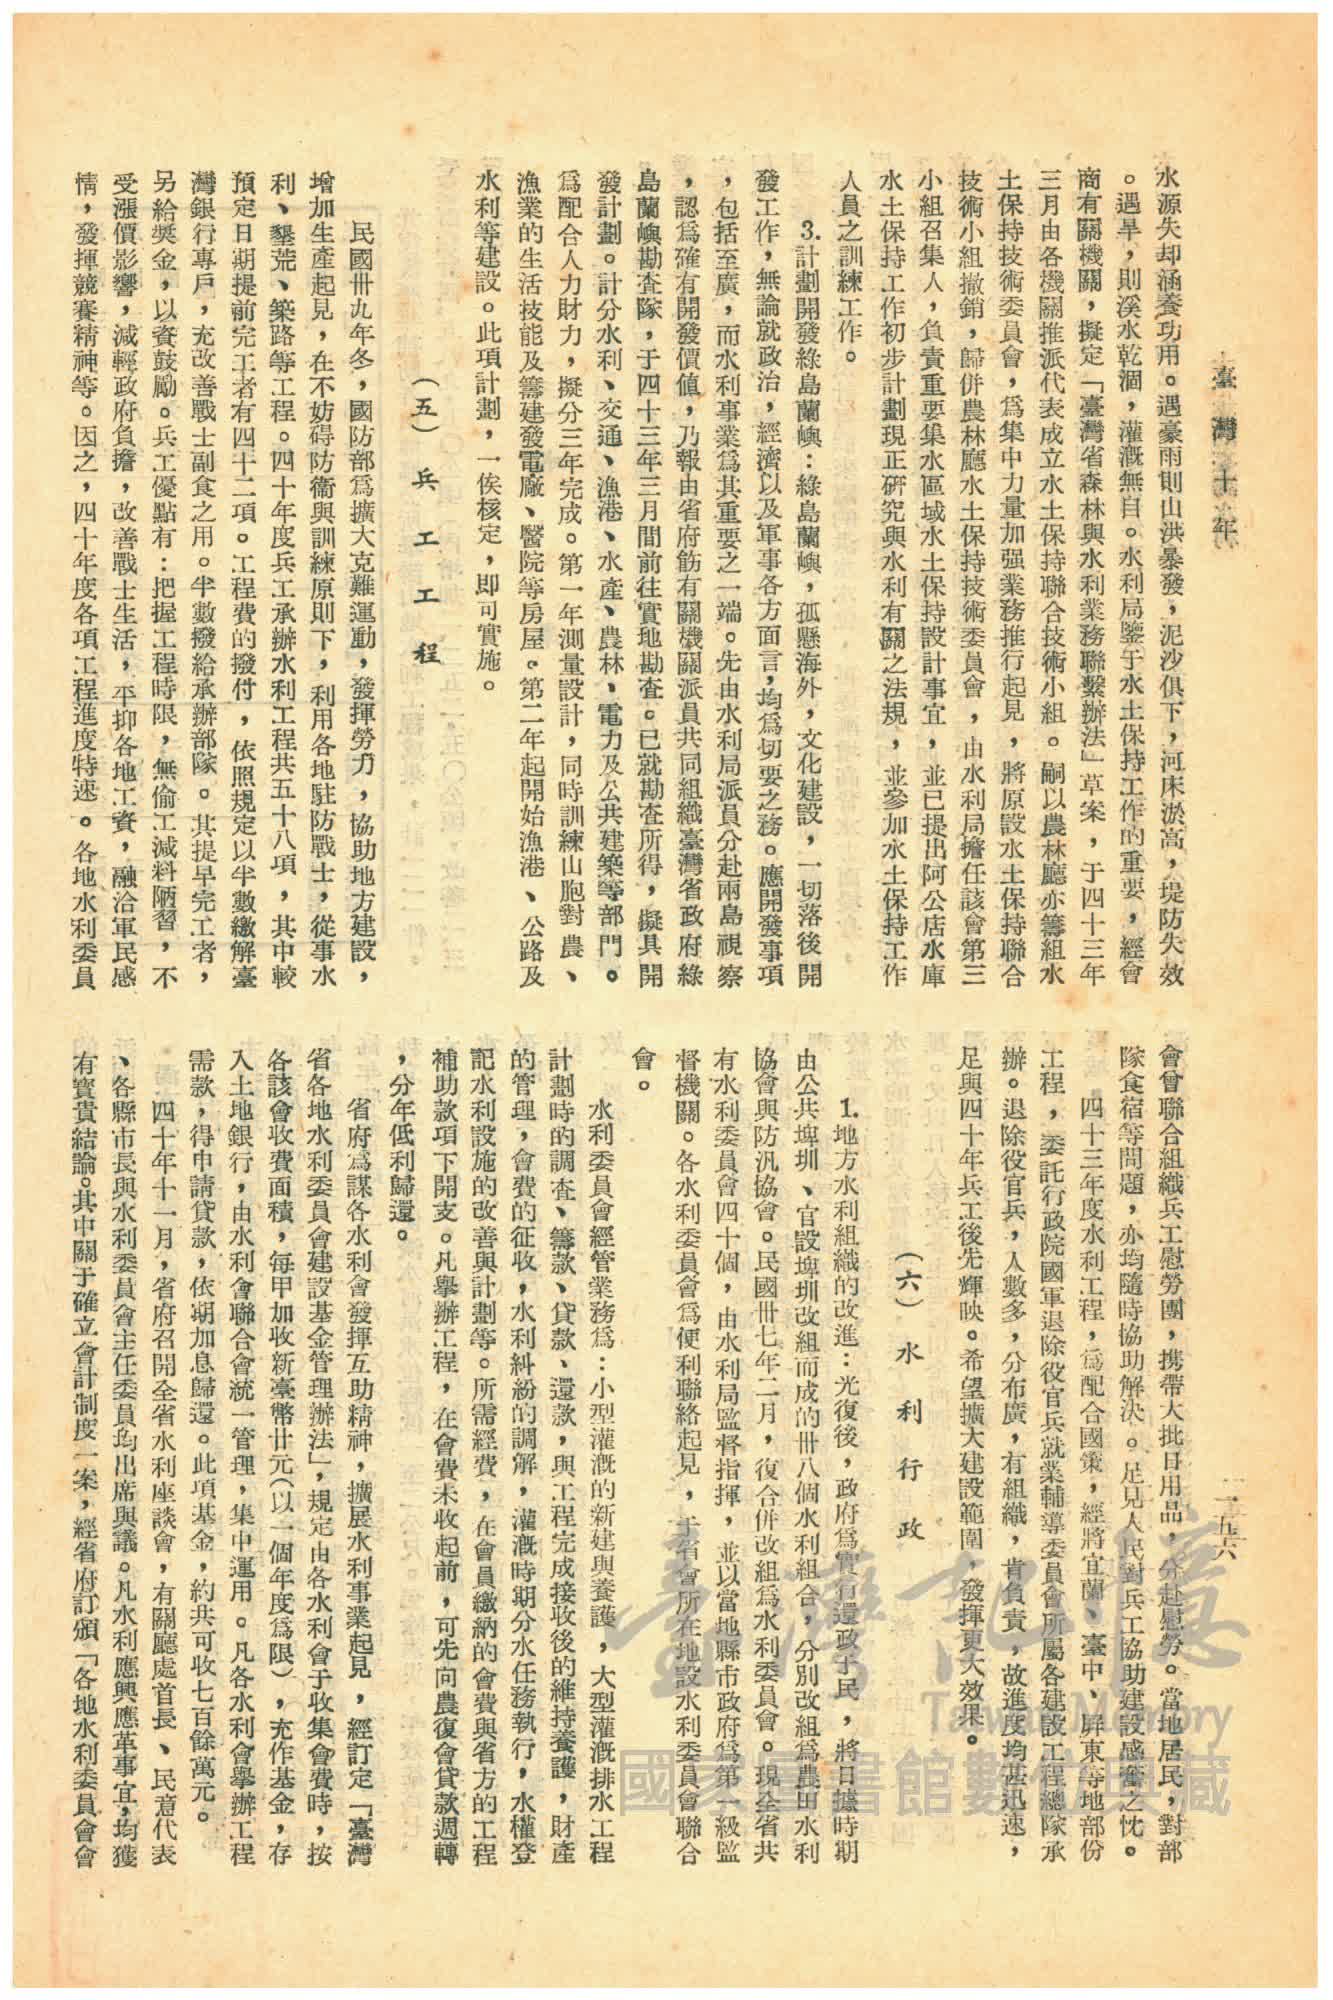 臺灣十年
一五六
水源失却涵養功用。遇豪雨則山洪暴發，泥沙俱下，河床淤高，堤防失效
。遇旱，則溪水乾涸，灌漑無自。水利局鑒于水土保持工作的重要，經會
商有關機關，擬定「臺灣省森林與水利業務聯繫辦法」草案，于四十三年
三月由各機關推派代表成立水土保持聯合技術小組。嗣以農林廳亦籌組水
土保持技術委員會，爲集中力量加强業務推行起見，將原設水土保持聯合
技術小組撤銷，歸併農林廳水土保持技術委員會，由水利局擔任該會第三
小組召集人，負責重要集水區域水土保持設計事宜，並已提出阿公店水庫
水土保持工作初步計劃現正硏究與水利有關之法規，並參加水土保持工作
人員之訓練工作。
3.計劃開發綠島蘭嶼：綠島蘭嶼，孤懸海外，文化建設，一切落後開
發工作，無論就政治，經濟以及軍事各方面言，均爲切要之務。應開發事項
，包括至廣，而水利事業爲其重要之一端。先由水利局派員分赴兩島視察
，認爲確有開發價値，乃報由省府飭有關機關派員共同組織臺灣省政府綠
島蘭嶼勘査隊，于四十三年三月間前往實地勘査。已就勘査所得，擬具開
發計劃。計分水利、交通、漁港、水產、農林、電力及公共建築等部門。
爲配合人力財力，擬分三年完成。第一年測量設計，同時訓練山胞對農、
漁業的生活技能及籌建發電廠、醫院等房屋。第二年起開始漁港、公路及
水利等建設。此項計劃，一俟核定，即可實施。
（五）兵工工程
民國卅九年冬，國防部爲擴大克難運動，發揮勞力，協助地方建設，
增加生產起見，在不妨碍防衞與訓練原則下，利用各地駐防戰士，從事水
利、墾荒、築路等工程。四十年度兵工承辦水利工程共五十八項，其中較
預定日期提前完工者有四十二項。工程費的撥付，依照規定以半數繳解臺
灣銀行專戶，充改善戰士副食之用。半數撥給承辦部隊。其提早完工者，
另給獎金，以資鼓勵。兵工優點有：把握工程時限，無偷工減料陋習，不
受漲價影響，減輕政府負擔，改善戰士生活，平抑各地工資，融洽軍民感
情，發揮競賽精神等。因之，四十年度各項工程進度特速。各地水利委員
會曾聯合組織兵工慰勞團，携帶大批日用品，分赴慰勞。當地居民，對部
隊食宿等問題，亦均隨時協助解決。足見人民對兵工協助建設感奮之忱。
四十三年度水利工程，爲配合國策，經將宜蘭、臺中、屏東等地部份
工程，委託行政院國軍退除役官兵就業輔導委員會所屬各建設工程總隊承
辦。退除役官兵，人數多，分布廣，有組織，肯負責，故進度均甚迅速，
足與四十年兵工後先輝映。希望擴大建設範圍，發揮更大效果。
（六）水利行政
1.地方水利組織的改進：光復後，政府爲實行還政于民，將日據時期
由公共埤圳、官設埤圳改組而成的卅八個水利組合，分別改組爲農田水利
協會與防汎協會。民國卅七年二月，復合併改組爲水利委員會。現全省共
有水利委員會四十個，由水利局監督指揮，並以當地縣市政府爲第一級監
督機關。各水利委員會爲便利聯絡起見，于省會所在地設水利委員會聯合
會。
水利委員會經管業務爲：小型灌漑的新建與養護，大型灌漑排水工程
計劃時的調査、籌款、貸款、還款，與工程完成接收後的維持養護，財產
的管理，會費的征收，水利糾紛的調解，灌漑時期分水任務執行，水權登
記水利設施的改善與計劃等。所需經費，在會員繳納的會費與省方的工程
補助款項下開支。凡舉辦工程，在會費未收起前，可先向農復會貸款週轉
，分年低利歸還。
省府爲謀各水利會發揮互助精神，擴展水利事業起見，經訂定「臺灣
省各地水利委員會建設基金管理辦法」，規定由各水利會于收集會費時，按
各該會收費面積，每甲加收新臺幣廿元（以一個年度爲限），充作基金，存
入土地銀行，由水利會聯合會統一管理，集中運用。凡各水利會舉辦工程
需款，得申請貸款，依期加息歸還。此項基金，約共可收七百餘萬元。
四十年十一月，省府召開全省水利座談會，有關廳處首長、民意代表
、各縣市長與水利委員會主任委員均出席與議。凡水利應興應革事宜，均獲
有寶貴結論。其中關于確立會計制度一案，經省府訂頒「各地水利委員會會
臺灣記憶
Taiwan Memory
國家圖書館數位典藏